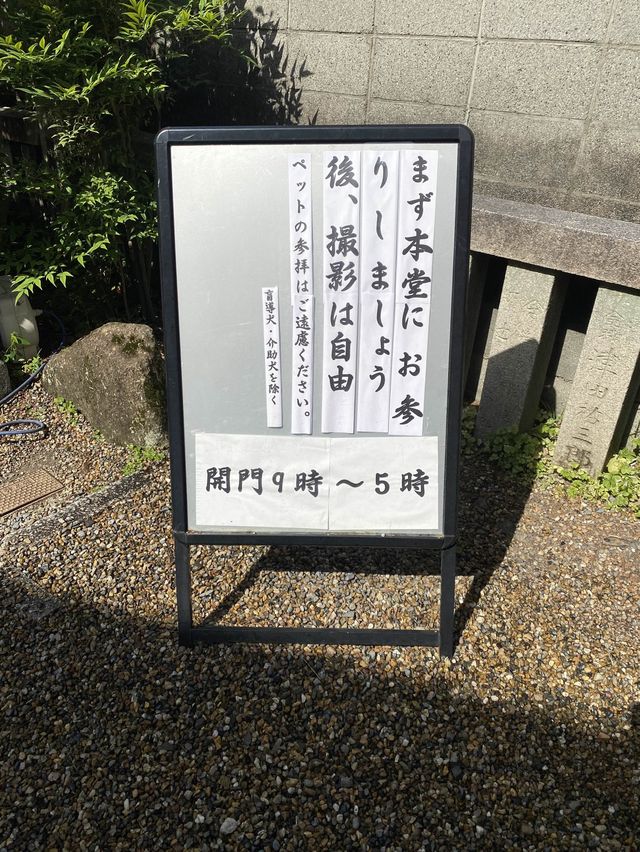 まず本堂にお参
りしましょう
後、撮影は自由
ペットの参拝はご遠慮ください。
盲導犬・介助犬を除く
開門9時～5時